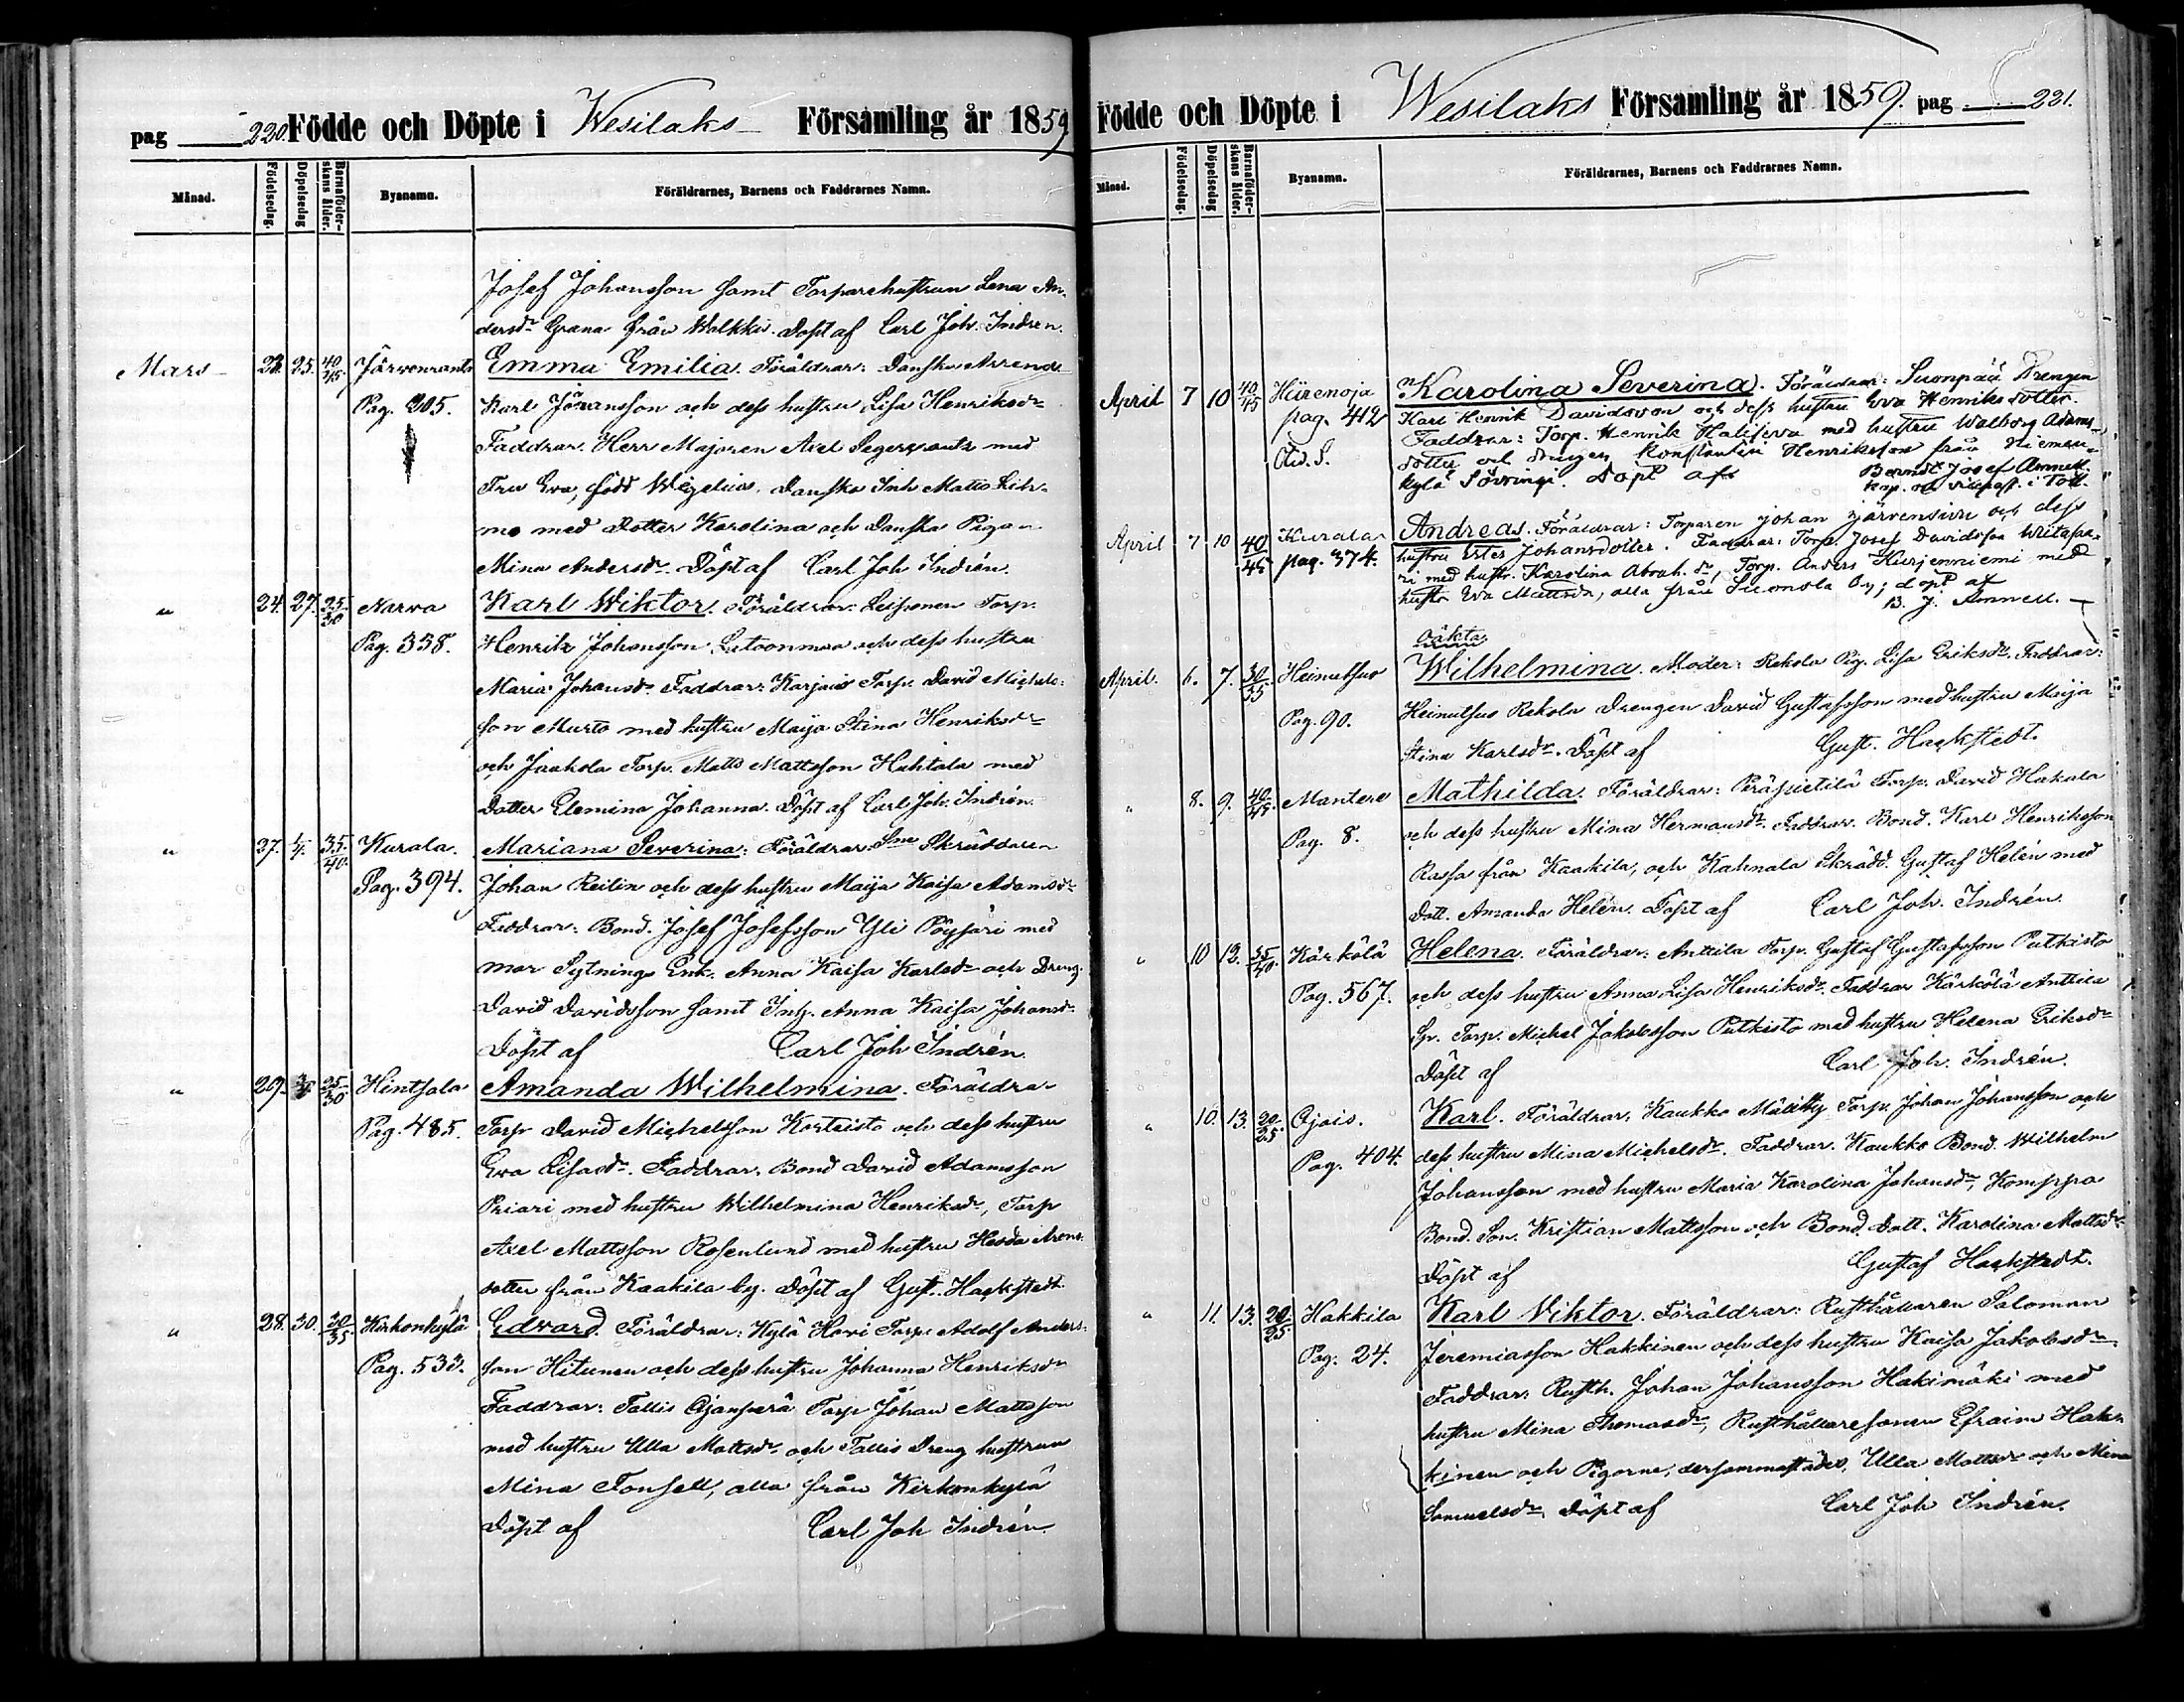 pag 220. Födde och Döpte i Wesilaks Församling år 1859
Månad. Födelsedag. Döpelsedag Barnaföderskans ålder. Byanamn. Föräldrarnes, Barnens och Faddrarnes Namn.
Josef Johansson samt Torparehustrun Lena An-
dersdr Grana från Walkki. Döpt af Carl Joh. Indrén.
Mars 23. 25. 40/45. Järvenranta Emma Emilia. Föräldrar: Danska Arrend.
Pag. 205. Karl Göransson och dess hustru Lisa Henriksdr
Faddrar. Herr Majoren Axel Segerstråle med
Fru Eva, född Wigelius. Danska Inh Matts Leh-
mo med Dotter Karolina och Danska Pigan
Mina Andersdr. Döpt af Carl Joh Indrén.
" 24. 27. 25/30 Narva Karl Wiktor. Föräldrar: Leiponen Torp.
Pag. 338. Henrik Johansson Lutoonmaa och dess hustru
Maria Johansd. Faddrar: Karjais Torp. David Michels-
son Murto med hustru Maija Stina Henriksdr
och Jaakola Torp. Matts Mattsson Huhtala med
Dotter Elemina Johanna. Döpt af Carl Joh. Indrén.
" 27. 4. 35/40. Kurala. Mariana Severina: Föräldrar: Sne Skräddaren
Pag. 394. Johan Reilin och dess hustru Maija Kaisa Adamsdr
Faddrar: Bond. Josef Josefsson Yli Pöysäri med
mor Sytnings Enk. Anna Kaisa Karlsdr och Dreng.
David Davidsson samt Inh. Anna Kaisa Johansdr
Döpt af Carl Joh Indrén.
" 29. 25/30 Hintsala Amanda Wilhelmina. Föräldra-
Pag. 485. Torp David Michelsson Korteisto och dess hustru
Eva Eliasdr. Faddrar: Bond David Adamsson
Priari med hustru Wilhelmina Henriksdr, Torp
Axel Mattsson Rosenlund med hustru Hedda Arons-
dotter från Kaakila by. Döpt af Gust. Hackstedt.
" 28. 30. 30/35 Kirkonkylä Edvard. Föräldrar: Kylä Hovi Torp. Adolf Anders-
Pag. 533. son Hitunen och dess hustru Johanna Henriksdr
Faddrar: Tallis Ojanperä Torp Johan Mattsson
med hustru Ulla Mattsdr och Tallis Dreng hustrun
Mina Fonsell, alla från Kirkonkylä
Döpt af Carl Joh Indrén.
Födde och Döpte i Wesilaks Församling år 1859. pag 221.
Månad. Födelsedag. Döpelsedag Barnaföderskans ålder. Byanamn. Föräldrarnes, Barnens och Faddrarnes Namn.
April 7 10 40/45 Hiirenoja Karolina Severina. Föräldrar: Suonpää Drengen
pag. 412 Karl Henrik Davidsson och dess hustru Eva Henriksdotter.
Faddrar: Torp. Henrik Haliseva med hustru Walborg Adams-
dotter och drengen Konstantin Henriksson från Niemen-
kylä Sövringi. Döpt af Berndt Josef Amnell.
kap. och vicepast. i Tott.
April 7 10 40/45 Kurala Andreas. Föräldrar: Torparen Johan Järvensivu och dess
pag. 374. hustru Ester Johansdotter. Faddrar: Torp. Josef Davidsson Wiitapa-
ri med hustr. Karolina Abrah. dr, Torp. Anders Kurjenniemi med
hustr Eva Mattsdr, alla från Suomela by; döpt af
B. J. Amnell.
oäkta
April. 6. 7. 30/35 Heinutsuo Wilhelmina. Moder: Rekola Pig. Lisa Eriksdr. Faddrar:
Pag. 90. Heinutsuo Rekola Drengen David Gustafsson med hustru Maija
Stina Karlsdr. Döpt af Gust. Hackstedt.
" 8. 9. 40/45. Mantere Mathilda. Föräldrar: Peräpietilä Torp. David Hakala
Pag. 8. och dess hustru Mina Hermansdr. Faddrar. Bond. Karl Henriksson
Rassa från Kaakila, och Kahnala Skrädd. Gustaf Helén med
Dott. Amanda Helén. Döpt af Carl Joh. Indrén.
" 10 12. 35/40. Kärkölä Helena. Föräldrar: Anttila Torp. Gustaf Gustafsson Putkisto
Pag. 567. och dess hustru Anna Lisa Henriksdr. Faddrar Kärkölä Anttila
Sp. Torp. Michel Jakobsson Putkisto med hustru Helena Eriksdr
Döpt af Carl Joh. Indrén.
" 10. 13. 20/25 Ojois. Karl. Föräldrar: Kaukko Torp. Johan Johansson och
Pag. 404. dess hustru Mina Michelsdr. Faddrar. Kaukko Bond. Wilhelm
Johansson med hustru Maria Karolina Johansdr, Komppa
Bond. Son. Kristian Mattsson och Bond. Dott. Karolina Mattsdr
Döpt af Gustaf Hackstedt.
" 11. 13. 20/25 Hakkila Karl Viktor. Föräldrar: Rusthållaren Salomon
Pag. 24. Jeremiasson Hakkinen och dess hustru Kaisa Jakobsdr
Faddrar: Rusth. Johan Johansson Hakimäki med
hustru Mina Thomasdr, Rusthållaresonen Efraim Hak-
kinen och Pigorne, dersammastädes, Ulla Mattsdr och Mina
Samuelsdr. Döpt af Carl Joh Indrén.